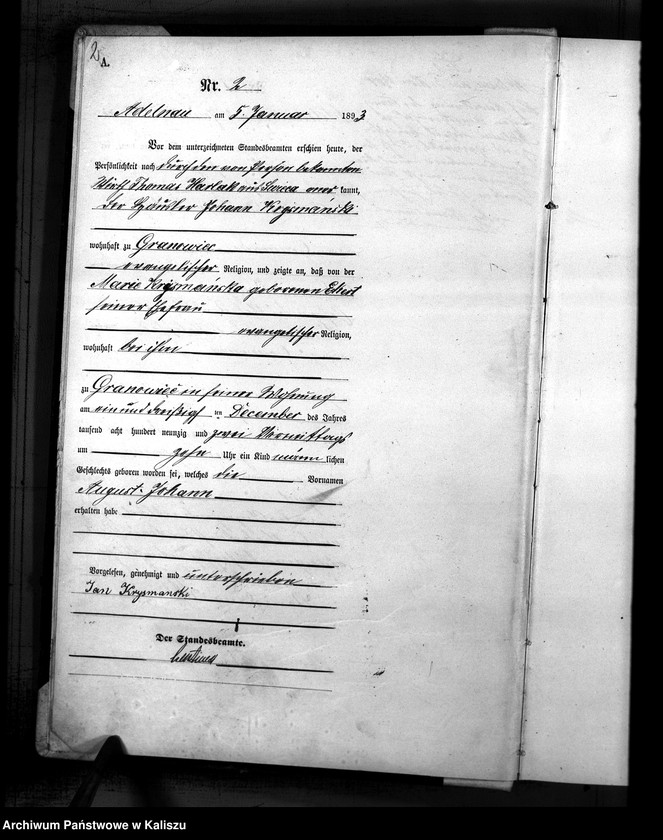 2
A.
Nr. 2
Adelnau am 5. Januar 1893
Vor dem unterzeichneten Standesbeamten erschien heute, der
Persönlichkeit nach durch den von Person bekannten
Wirth Thomas aus aner kannt,
der Häusler Johann Krysmański
wohnhaft zu Granowiec
evangelischer Religion, und zeigte an, daß von der
Marie Krysmańska geborenen Ekert
seiner Ehefrau
evangelischer Religion,
wohnhaft bei ihm
zu Granowiec in seiner Wohnung
am ein und dreißigsten December des Jahres
tausend acht hundert neunzig und zwei Vormittags
um zehn Uhr ein Kind männ lichen
Geschlechts geboren worden sei, welches die Vornamen
August Johann
erhalten habe
Vorgelesen, genehmigt und unterschrieben
Jan Krysmanski
Der Standesbeamte.
Archiwum Państwowe w Kaliszu